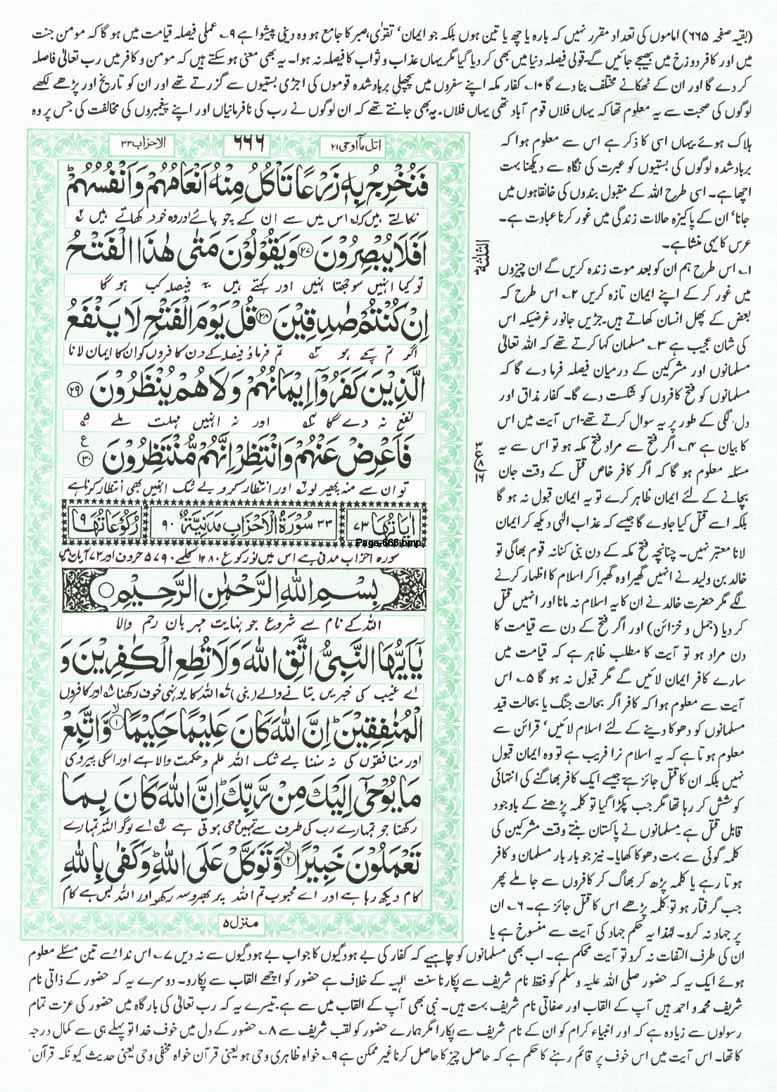 (بقیہ صفحہ ۶۶۵) اماموں کی تعداد مقرر نہیں کہ بارہ یا چھ یا تین ہوں بلکہ جو ایمان' تقوٰی، صبر کا جامع ہو وہ دینی پیشوا ہے ۹۔ عملی فیصلہ قیامت میں ہو گا کہ مومن جنت
میں اور کافر دوزخ میں بھیجے جائیں گے۔ قولی فیصلہ دنیا میں بھی کر دیا گیا مگر یہاں عذاب و ثواب کا فیصلہ نہ ہوا۔ یہ بھی معنی ہو سکتے ہیں کہ مومن و کافر میں رب تعالٰی فاصلہ
کر دے گا اور ان کے ٹھکانے مختلف بنا دے گا ۱۰۔ کفار مکہ اپنے سفروں میں پچھلی برباد شدہ قوموں کی اجڑی بستیوں سے گزرتے تھے اور ان کو تاریخ اور پڑھے لکھے
لوگوں کی صحبت سے یہ معلوم تھا کہ یہاں فلاں قوم آباد تھی یہاں فلاں۔ یہ بھی جانتے تھے کہ ان لوگوں نے رب کی نافرمانیاں اور اپنے پیغمبروں کی مخالفت کی جس پر وہ
ہلاک ہوئے یہاں اسی کا ذکر ہے اس سے معلوم ہوا کہ
برباد شدہ لوگوں کی بستیوں کو عبرت کی نگاہ سے دیکھنا بہت
اچھا ہے۔ اسی طرح اللہ کے مقبول بندوں کی خانقاہوں میں
جانا' ان کے پاکیزہ حالات زندگی میں غور کرنا عبادت ہے۔
عرس کا یہی منشا ہے۔
۱۔ اس طرح ہم ان کو بعد موت زندہ کریں گے ان چیزوں
میں غور کر کے اپنے ایمان تازہ کریں ۲۔ اس طرح کہ
بعض کے پھل انسان کھاتے ہیں۔ جڑیں جانور غرضیکہ اس
کی شان عجیب ہے ۳۔ مسلمان کہا کرتے تھے کہ اللہ تعالٰی
مسلمانوں اور مشرکین کے درمیان فیصلہ فرما دے گا کہ
مسلمانوں کو فتح کافروں کو شکست دے گا۔ کفار مذاق اور
دل لگی کے طور پر یہ سوال کرتے تھے۔ اس آیت میں اس
کا بیان ہے ۴۔ اگر فتح سے مراد فتح مکہ ہو تو اس سے یہ
مسئلہ معلوم ہو گا کہ اگر کافر خاص قتل کے وقت جان
بچانے کے لئے ایمان ظاہر کرے تو یہ ایمان قبول نہ ہو گا
بلکہ اسے قتل کیا جاوے گا جیسے کہ عذاب الٰہی دیکھ کر ایمان
لانا معتبر نہیں۔ چنانچہ فتح مکہ کے دن بنی کنانہ قوم بھاگی تو
خالد بن ولید نے انہیں گھیرا وہ گھبرا کر اسلام کا اظہار کرنے
لگے مگر حضرت خالد نے ان کا یہ اسلام نہ مانا اور انہیں قتل
کر دیا (جمل و خزائن) اور اگر فتح کے دن سے قیامت کا
دن مراد ہو تو آیت کا مطلب ظاہر ہے کہ قیامت میں
سارے کافر ایمان لائیں گے مگر قبول نہ ہو گا ۵۔ اس
آیت سے معلوم ہوا کہ کافر اگر بحالت جنگ یا بحالت قید
مسلمانوں کو دھوکا دینے کے لئے اسلام لائیں' قرائن سے
معلوم ہوتا ہے کہ یہ اسلام نرا فریب ہے تو وہ ایمان قبول
نہیں بلکہ ان کا قتل جائز ہے جیسے ایک کافر بھاگنے کی انتہائی
کوشش کر رہا تھا مگر جب پکڑا گیا تو کلمہ پڑھنے کے باوجود
قابل قتل ہے مسلمانوں نے پاکستان بنتے وقت مشرکین کی
کلمہ گوئی سے بہت دھوکا کھایا۔ نیز جو بار بار مسلمان و کافر
ہوتا رہے یا کلمہ پڑھ کر بھاگ کر کافروں سے جا ملے پھر
جب گرفتار ہو تو کلمہ پڑھے اس کا قتل جائز ہے۔ ۶۔ ان
پر جہاد نہ کرو۔ لہٰذا یہ حکم جہاد کی آیت سے منسوخ ہے یا
اتل مآ اوحی ۲۱
۶۶۶
الاحزاب ۳۳
فَنُخْرِجُ بِهٖ زَرْعًا تَاْكُلُ مِنْهُ اَنْعَامُهُمْ وَاَنْفُسُهُمْ
نکالتے ہیں کہ اس میں سے ان کے چوپائے اور وہ خود کھاتے ہیں
اَفَلَا يُبْصِرُوْنَ ۲۷ وَيَقُوْلُوْنَ مَتٰى هٰذَا الْفَتْحُ
تو کیا انہیں سوجھتا نہیں اور کہتے ہیں یہ فیصلہ کب ہو گا
اِنْ كُنْتُمْ صٰدِقِيْنَ ۲۸ قُلْ يَوْمَ الْفَتْحِ لَا يَنْفَعُ
اگر تم سچے ہو تم فرماؤ فیصلہ کے دن کافروں کو ان کا ایمان لانا
الَّذِيْنَ كَفَرُوْٓا اِيْمَانُهُمْ وَلَا هُمْ يُنْظَرُوْنَ ۲۹
نفع نہ دے گا اور نہ انہیں مہلت ملے
فَاَعْرِضْ عَنْهُمْ وَانْتَظِرْ اِنَّهُمْ مُّنْتَظِرُوْنَ ۳۰
تو ان سے منہ پھیر لو اور انتظار کرو بے شک انہیں بھی انتظار کرنا ہے
اٰيَاتُهَا ۷۳ ۳۳ سُوْرَةُ الْاَحْزَابِ مَدَنِيَّةٌ ۹۰ رُكُوْعَاتُهَا ۹
سورہ احزاب مدنی ہے اس میں نو رکوع ۱۲۸۰ کلمے ۵۷۹۰ حروف اور ۷۳ آیات ہیں
Page-666.bmp
بِسْمِ اللهِ الرَّحْمٰنِ الرَّحِيْمِ
اللہ کے نام سے شروع جو نہایت مہربان رحم والا
يٰٓاَيُّهَا النَّبِيُّ اتَّقِ اللهَ وَلَا تُطِعِ الْكٰفِرِيْنَ وَ
اے غیب کی خبریں بتانے والے (نبی) اللہ کا یوں ہی خوف رکھنا اور کافروں
الْمُنٰفِقِيْنَ اِنَّ اللهَ كَانَ عَلِيْمًا حَكِيْمًا ۱ وَّاتَّبِعْ
اور منافقوں کی نہ سننا بے شک اللہ علم و حکمت والا ہے اور اسکی پیروی
مَا يُوْحٰٓى اِلَيْكَ مِنْ رَّبِّكَ اِنَّ اللهَ كَانَ بِمَا
رکھنا جو تمہارے رب کی طرف سے تمہیں وحی ہوتی ہے اے لوگو اللہ تمہارے
تَعْمَلُوْنَ خَبِيْرًا ۲ وَّتَوَكَّلْ عَلَى اللهِ وَكَفٰى بِاللهِ
کام دیکھ رہا ہے اور اے محبوب تم اللہ پر بھروسہ رکھو اور اللہ بس ہے کام
منزل ۵
ان کی طرف التفات نہ کرو تو آیت محکم ہے۔ اب بھی مسلمانوں کو چاہیے کہ کفار کی بے ہودگیوں کا جواب بے ہودگیوں سے نہ دیں ۷۔ اس ندا سے تین مسئلے معلوم
ہوئے ایک یہ کہ حضور صلی اللہ علیہ و سلم کو فقط نام شریف سے پکارنا سنت الٰہیہ کے خلاف ہے حضور کو اچھے القاب سے پکارو۔ دوسرے یہ کہ حضور کے ذاتی نام
شریف محمد و احمد ہیں آپ کے القاب اور صفاتی نام شریف بہت ہیں۔ نبی بھی آپ کے القاب میں سے ہے۔ تیسرے یہ کہ رب تعالٰی کی بارگاہ میں حضور کی عزت تمام
رسولوں سے زیادہ ہے کہ اور انبیاء کرام کو ان کے نام شریف سے پکارا مگر ہمارے حضور کو لقب شریف سے ۸۔ حضور کے دل میں خوف خدا تو پہلے ہی سے کمال درجہ
کا تھا۔ اس آیت میں اس خوف پر قائم رہنے کا حکم ہے کہ حاصل چیز کا حاصل کرنا غیر ممکن ہے ۹۔ خواہ ظاہری وحی ہو یعنی قرآن خواہ مخفی وحی یعنی حدیث کیونکہ قرآن'